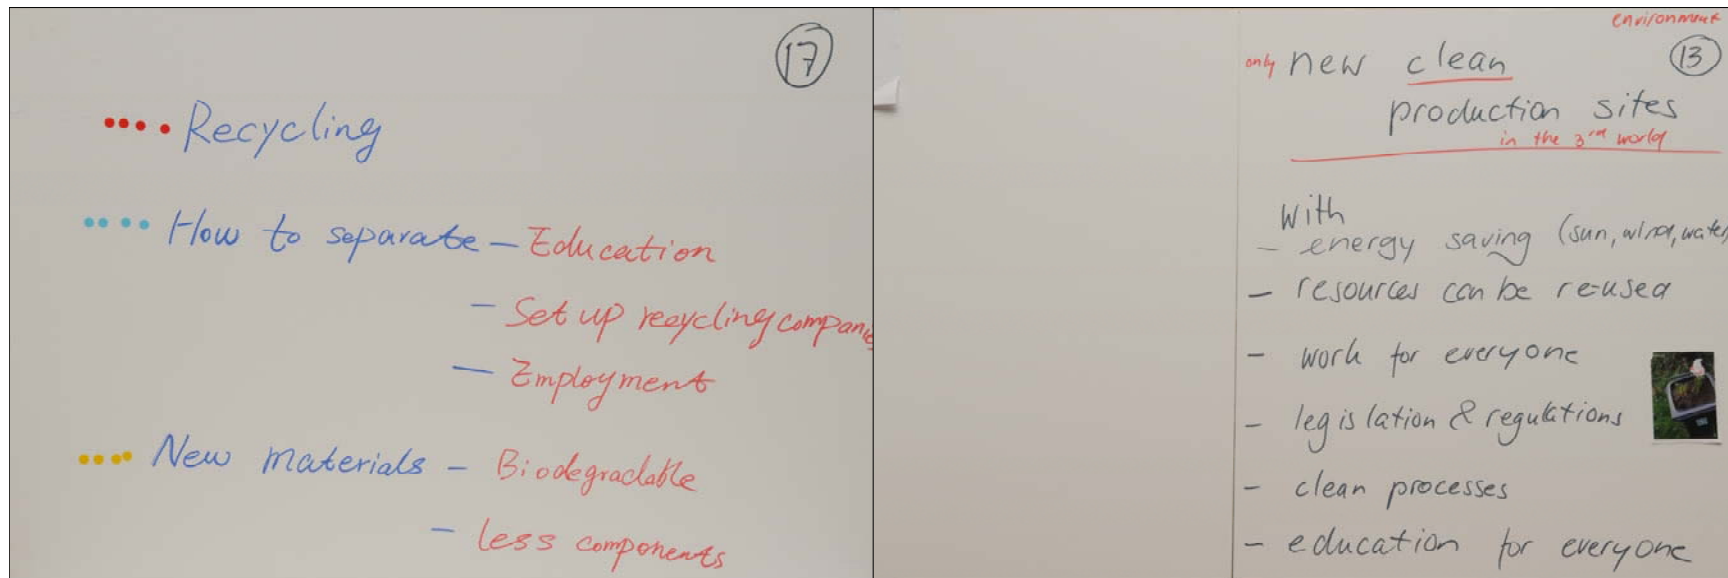 17
Recycling
How to separate – Education
– Set up recycling companies
– Employment
New materials – Biodegradable
– less components
environment
only new clean 13
production sites
in the 3rd world
with
– energy saving (sun, wind, water)
– resources can be re-used
– work for everyone
– legislation & regulations
– clean processes
– education for everyone